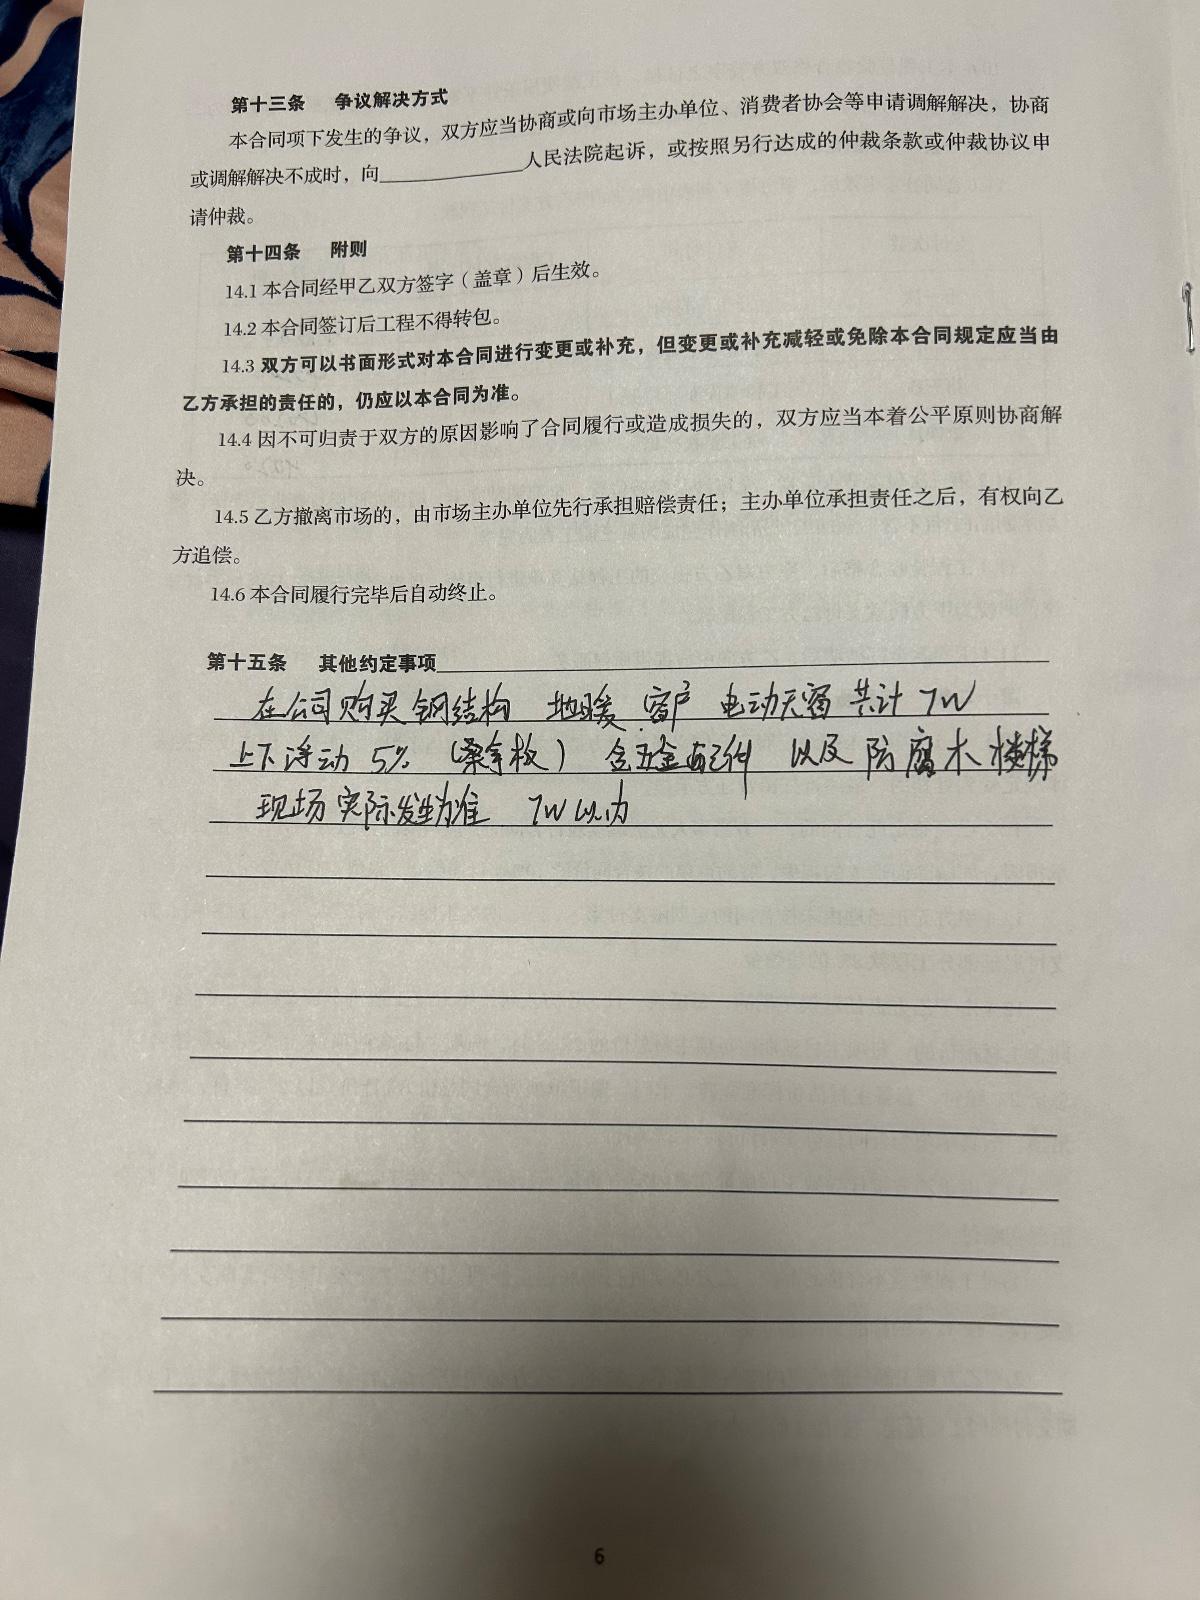 第十三条 争议解决方式
本合同项下发生的争议，双方应当协商或向市场主办单位、消费者协会等申请调解解决，协商
或调解解决不成时，向____________人民法院起诉，或按照另行达成的仲裁条款或仲裁协议申
请仲裁。
第十四条 附则
14.1 本合同经甲乙双方签字（盖章）后生效。
14.2 本合同签订后工程不得转包。
14.3 双方可以书面形式对本合同进行变更或补充，但变更或补充减轻或免除本合同规定应当由
乙方承担的责任的，仍应以本合同为准。
14.4 因不可归责于双方的原因影响了合同履行或造成损失的，双方应当本着公平原则协商解
决。
14.5 乙方撤离市场的，由市场主办单位先行承担赔偿责任；主办单位承担责任之后，有权向乙
方追偿。
14.6 本合同履行完毕后自动终止。
第十五条 其他约定事项
在公司购买 钢结构 地暖 窗户 电动天窗 共计 7W
上下浮动 5% （桑拿板） 含五金配件 以及 防腐木楼梯
现场实际发生为准 7W以内
6